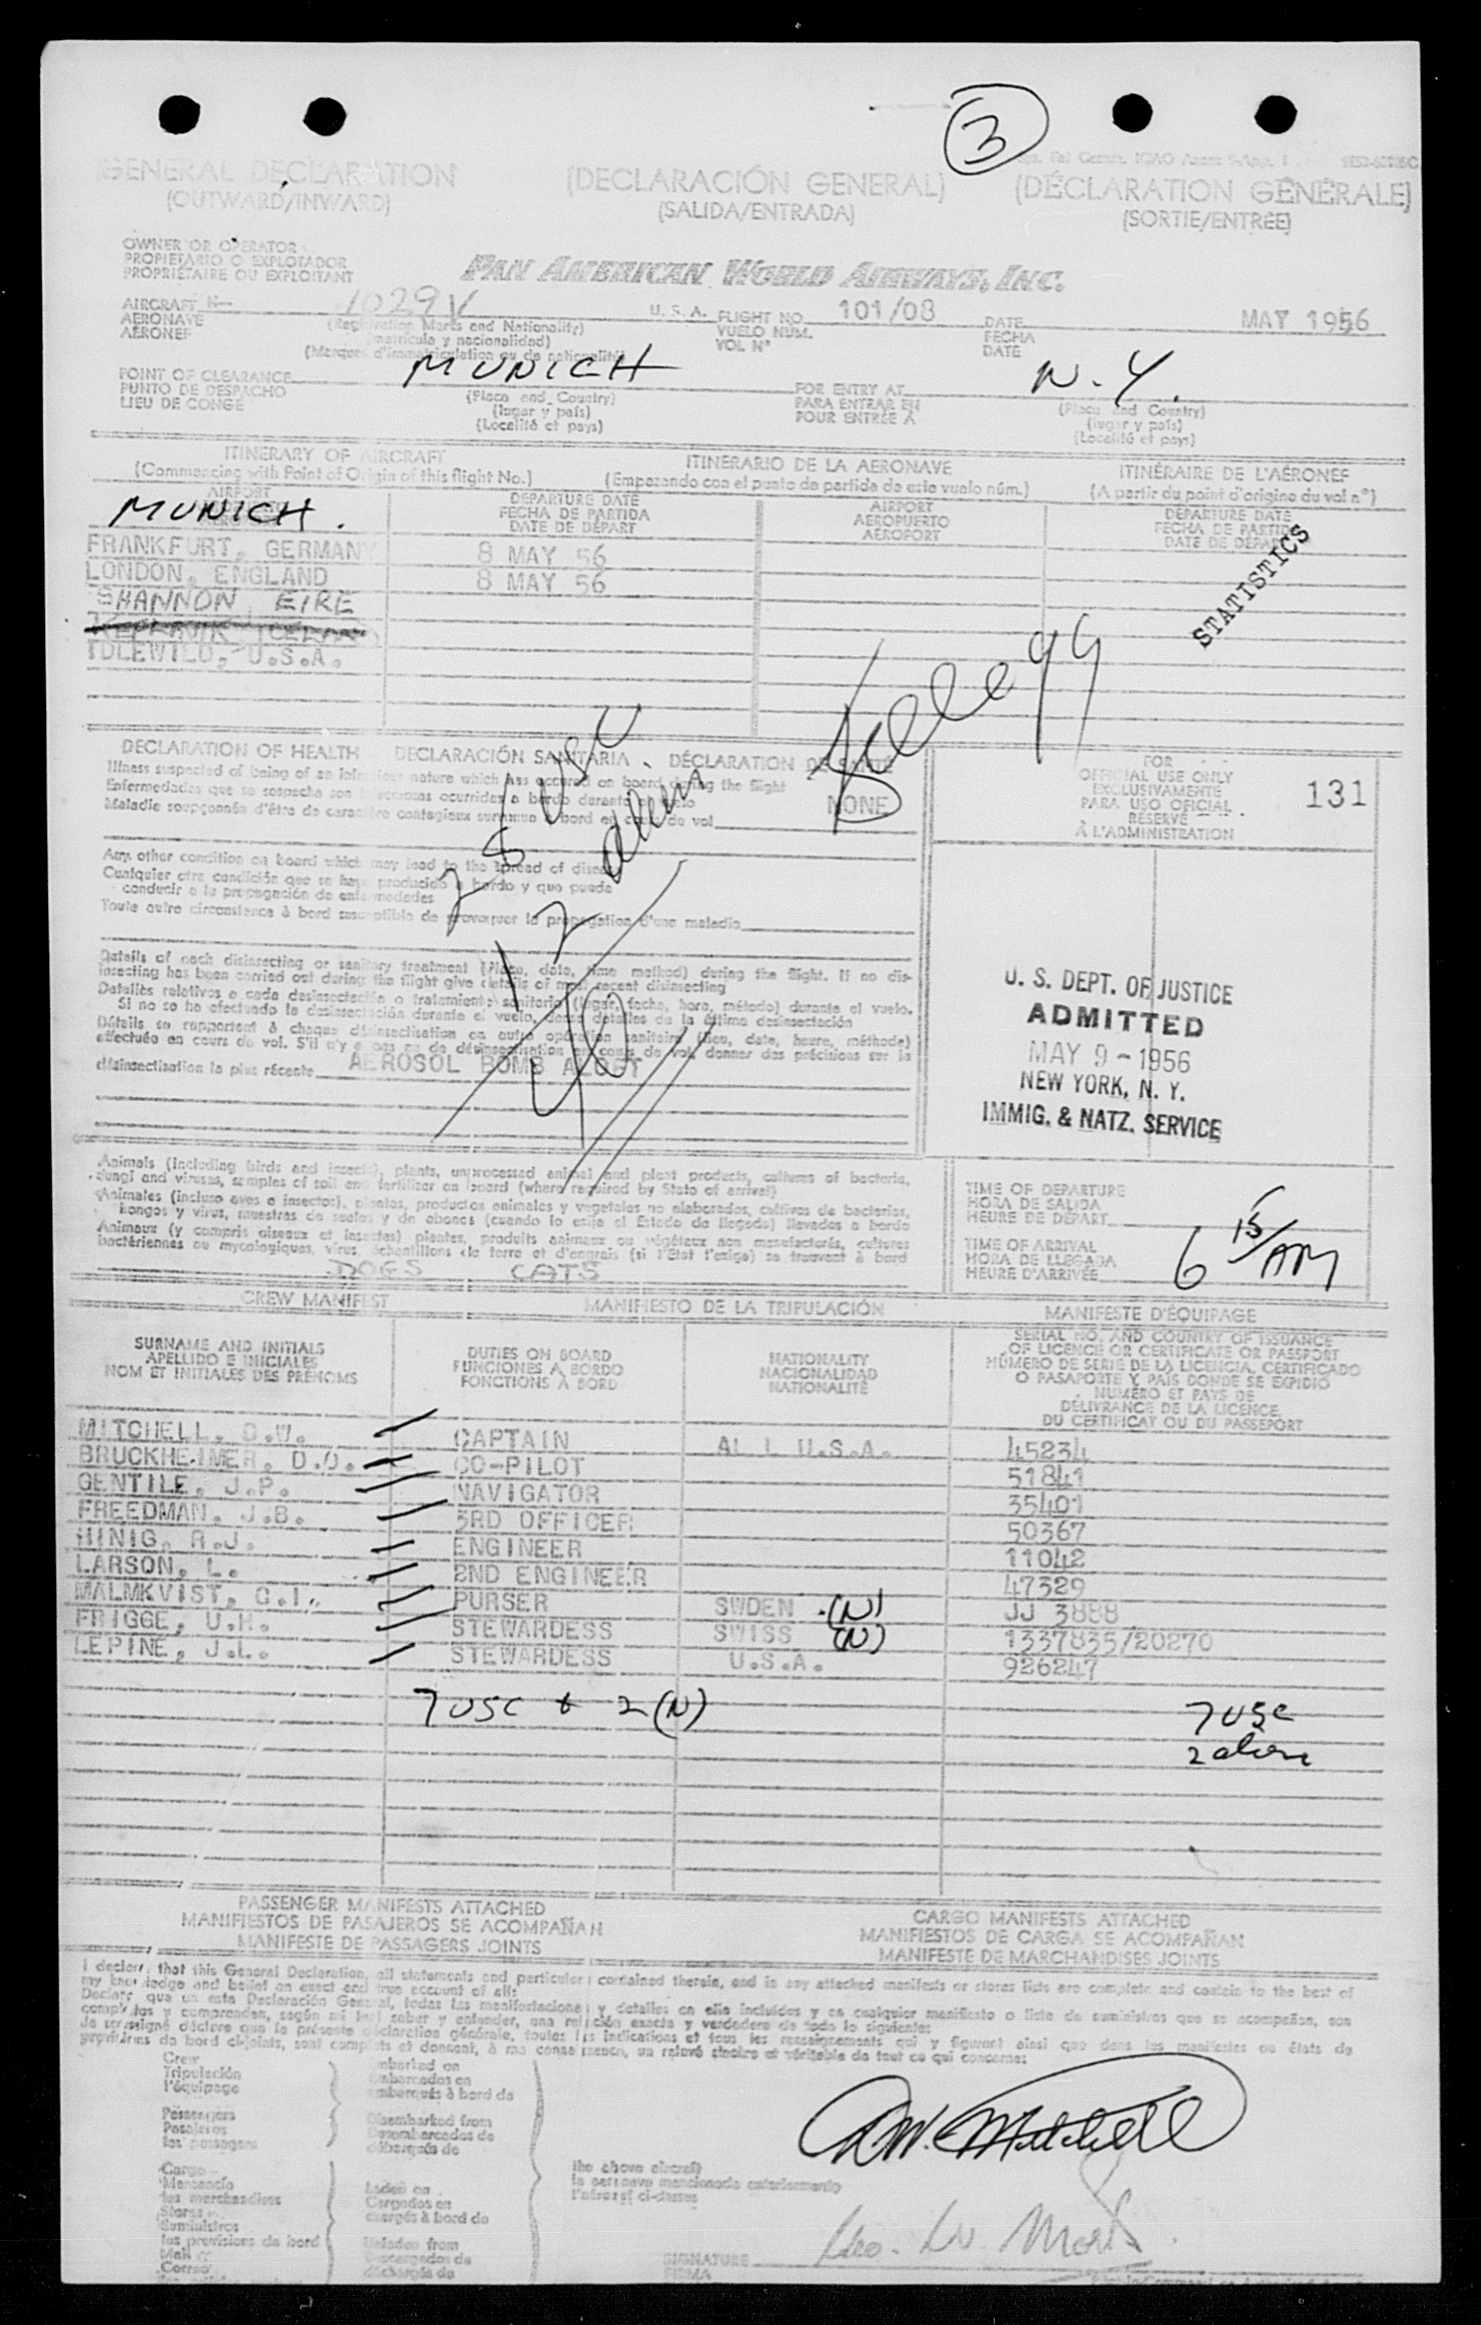 3
GENERAL DECLARATION
(OUTWARD/INWARD)
(DECLARACIÓN GENERAL)
(SALIDA/ENTRADA)
(DÉCLARATION GÉNÉRALE)
(SORTIE/ENTRÉE)
OWNER OR OPERATOR
PROPIETARIO O EXPLOTADOR
PROPRIÉTAIRE OU EXPLOITANT
PAN AMERICAN WORLD AIRWAYS, INC.
AIRCRAFT N- 1029V U. S. A. FLIGHT NO. 101/08 DATE MAY 1956
AERONAVE (Registration Marks and Nationality) VUELO NUM. FECHA
AÉRONEF (matrícula y nacionalidad) VOL Nº DATE
(Marques d'immatriculation ou de nationalité)
POINT OF CLEARANCE MUNICH FOR ENTRY AT N. Y.
PUNTO DE DESPACHO (Place and Country) PARA ENTRAR EN (Place and Country)
LIEU DE CONGÉ (lugar y país) POUR ENTRÉE À (lugar y país)
(Localité et pays) (Localité et pays)
ITINERARY OF AIRCRAFT ITINERARIO DE LA AERONAVE ITINÉRAIRE DE L'AÉRONEF
(Commencing with Point of Origin of this flight No.) (Empezando con el punto de partida de este vuelo núm.) (A partir du point d'origine du vol nº)
AIRPORT DEPARTURE DATE AIRPORT DEPARTURE DATE
FECHA DE PARTIDA AEROPUERTO FECHA DE PARTIDA
DATE DE DÉPART AÉROPORT DATE DE DÉPART
MUNICH.
FRANKFURT, GERMANY 8 MAY 56
LONDON, ENGLAND 8 MAY 56
SHANNON EIRE
IDLEWILD, U.S.A.
STATISTICS
Kellegg
DECLARATION OF HEALTH DECLARACIÓN SANITARIA DÉCLARATION DE SANTÉ
Illness suspected of being of an infectious nature which has occured on board during the flight
Enfermedades que se sospecha son infecciosas ocurridas a bordo durante el vuelo NONE
Maladie soupçonnée d'être de caractère contagieux survenue à bord en cours de vol
FOR
OFFICIAL USE ONLY
EXCLUSIVAMENTE
PARA USO OFICIAL
RÉSERVÉ
À L'ADMINISTRATION
131
Any other condition on board which may lead to the spread of disease
Cualquier otra condición que se haya producido a bordo y que pueda
conducir a la propagación de enfermedades
Toute autre circonstance à bord susceptible de provoquer la propagation d'une maladie
Details of each disinsecting or sanitary treatment (Place, date, time method) during the flight. If no disinsecting has been carried out during the flight give details of most recent disinsecting
Detalles relativos a cada desinsectación o tratamiento sanitario (lugar, fecha, hora, método) durante el vuelo.
Si no se ha efectuado la desinsectación durante el vuelo, dense detalles de la última desinsectación
Détails se rapportant à chaque désinsectisation ou autre opération sanitaire (lieu, date, heure, méthode)
effectuée en cours de vol. S'il n'y a pas eu de désinsectisation en cours de vol, donner des précisions sur la
désinsectisation la plus récente AEROSOL BOMB ALOFT
U. S. DEPT. OF JUSTICE
ADMITTED
MAY 9 - 1956
NEW YORK, N. Y.
IMMIG. & NATZ. SERVICE
Animals (including birds and insects), plants, unprocessed animal and plant products, cultures of bacteria,
fungi and viruses, samples of soil and fertilizer on board (where required by State of arrival)
Animales (incluso aves o insectos), plantas, productos animales y vegetales no elaborados, cultivos de bacterias,
hongos y virus, muestras de suelos y de abonos (cuando lo exija el Estado de llegada) llevados a bordo
Animaux (y compris oiseaux et insectes) plantes, produits animaux ou végétaux non manufacturés, cultures
bactériennes ou mycologiques, virus, échantillons de terre et d'engrais (si l'État l'exige) se trouvant à bord
DOGS CATS
TIME OF DEPARTURE
HORA DE SALIDA
HEURE DE DÉPART
TIME OF ARRIVAL
HORA DE LLEGADA
HEURE D'ARRIVÉE
6 15/AM
CREW MANIFEST MANIFIESTO DE LA TRIPULACIÓN MANIFESTE D'ÉQUIPAGE
SURNAME AND INITIALS
APELLIDO E INICIALES
NOM ET INITIALES DES PRÉNOMS
DUTIES ON BOARD
FUNCIONES A BORDO
FONCTIONS À BORD
NATIONALITY
NACIONALIDAD
NATIONALITÉ
SERIAL NO. AND COUNTRY OF ISSUANCE
OF LICENCE OR CERTIFICATE OR PASSPORT
NÚMERO DE SERIE DE LA LICENCIA, CERTIFICADO
O PASAPORTE Y PAÍS DONDE SE EXPIDIÓ
NUMÉRO ET PAYS DE
DÉLIVRANCE DE LA LICENCE
DU CERTIFICAT OU DU PASSEPORT
MITCHELL, D.W. CAPTAIN ALL U.S.A. 45234
BRUCKHEIMER, D.O. CO-PILOT 51841
GENTILE, J.P. NAVIGATOR 35401
FREEDMAN, J.B. 3RD OFFICER 50367
HINIG, R.J. ENGINEER 11042
LARSON, L. 2ND ENGINEER 47329
MALMKVIST, C.I. PURSER SWDEN (N) JJ 3888
FRIGGE, U.H. STEWARDESS SWISS (N) 1337835/20270
LEPINE, J.L. STEWARDESS U.S.A. 926247
7 USC & 2 (N)
7 USC
2 alien
PASSENGER MANIFESTS ATTACHED
MANIFIESTOS DE PASAJEROS SE ACOMPAÑAN
MANIFESTE DE PASSAGERS JOINTS
CARGO MANIFESTS ATTACHED
MANIFIESTOS DE CARGA SE ACOMPAÑAN
MANIFESTE DE MARCHANDISES JOINTS
I declare that this General Declaration, all statements and particulars contained therein, and in any attached manifests or stores lists are complete and contain to the best of
my knowledge and belief an exact and true account of all:
Crew
Tripulación
l'équipage
Passengers
Pasajeros
les passagers
Cargo
Mercancía
les marchandises
Stores
Suministros
les provisions de bord
Mail
Correo
Embarked on
Embarcados en
embarqués à bord de
Disembarked from
Desembarcados de
débarqués de
Laden on
Cargados en
chargés à bord de
Unladen from
Descargados de
déchargés de
the above aircraft
la aeronave mencionada anteriormente
l'aéronef ci-dessus
D.W. Mitchell
SIGNATURE
FIRMA